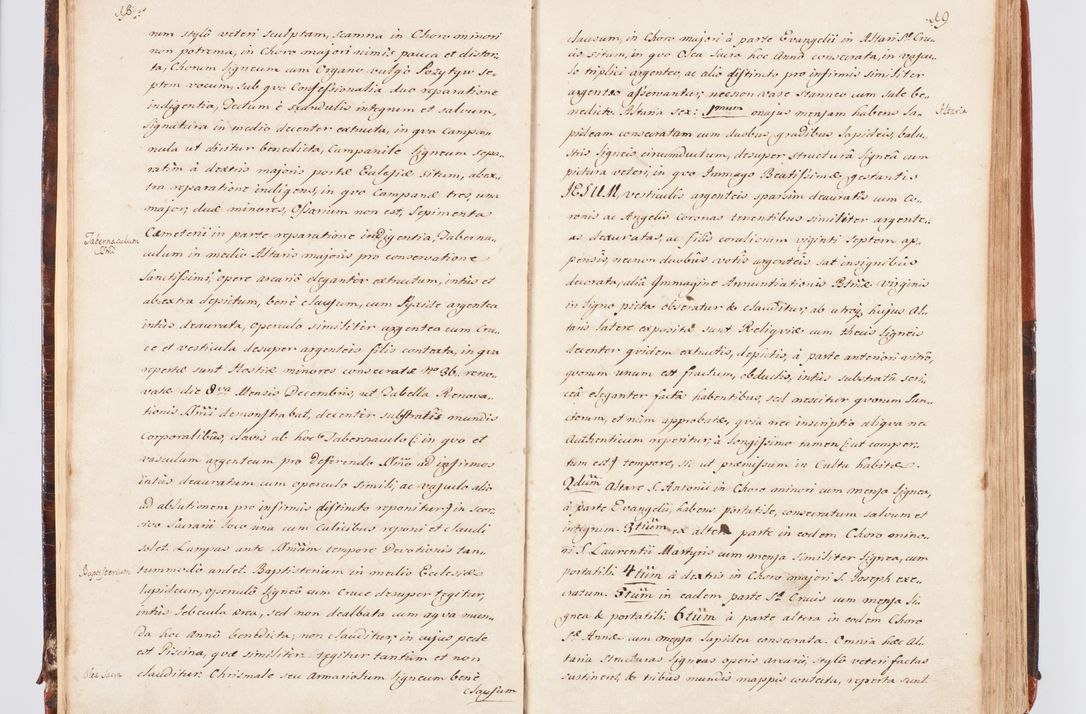 48.
num stylô veteri sculptam, scamna in Choro minori
non potrema, in Choro majori nimis pauca et distor-
ta, Chorum ligneum cum Organo vulgò Pozytyw se-
ptem vocum, sub qvo Confessionalia duo reparatione
indigentia, Tectum è scandulis integrum et salvum,
signatura in medio decenter extructa, in qvo Campa-
nula ut dicitur benedicta, Campanile ligneum sepa-
ratim à dextris majoris portæ Ecclesiæ situm, ab ex-
tra reparatione indigens, in qvo Campanæ tres, una
major, duæ minores, Ossarium non est, Sepimenta
Cæmeterii in parte reparatione indigentia, Taberna-
Tabernaculum
culum in medio Altaris majoris pro conservatione
Sanctissimi, opere arcariô eleganter extructum, intùs et
ab extra depictum, benè clausum, cum Pyxide argentea
intùs deaurata, operculo similiter argenteo cum Cru-
ce et vesticula desuper argenteis filis contexta, in qva
repertæ sunt Hostiæ minores consecratæ Nro 36. reno-
vatæ die 8va Mensis Decembris, ut Tabella Renova-
tionis demonstrabat, decenter substratis mundis
Corporalibus, clavis ab hoc Tabernaculo (: in qvo et
vasculum argenteum pro deferendo ad infirmos
intùs deauratum cum operculo simili, ac vasculo alio
ad ablutionem pro infirmis distincto reponitur :) in
loco una cum Calicibus reponi et claudi
solet. Lampas ante tempore Devotionis tan-
tummodo ardet. Baptisterium in medio Ecclesiæ
Baptisterium
lapideum, operculô ligneô cum Cruce desuper tegitur,
intùs lebecula ærea, sed non dealbata cum aqva mun-
da hoc Annô benedicta, non clauditur, in cujus pede
est Piscina, qvæ similiter tegitur tantùm et non
Olea Sacra
clauditur. Chrismale seu Armariolum ligneum benè
clausum
49
clausum, in Choro majori à parte Evangelii in Altari S. Cru-
cis situm, in qvo Olea Sacra hoc Annô consecrata, in vascu-
lo triplici argenteo, ac alio distincto pro infirmis similiter
argenteo asservantur, necnon vase stanneo cum sale be-
nedicto. Altaria sex: 1mum majus mensam habens la-
Altaria
pideam consecratam cum duobus gradibus lapideis, balu-
stris ligneis circumductum, desuper structurâ ligneâ cum
pictura veteri, in qvo Immago Beatissimæ, gestantis
JESUM, vesticulis argenteis sparsim deauratis cum Co-
ronis ac Angelis coronas tenentibus similiter argente-
is deauratis, ac filis coraliorum viginti septem ap-
pensis, necnon duobus votis argenteis sat insignibus
decorata, aliâ Immagine Annuntiationis Virginis
in ligno picta obseratur & clauditur, ab utroq; hujus Al-
taris latere expositæ sunt Reliqviæ cum thecis ligneis
decenter qvidem extructis, depictis, à parte anteriori vitro,
qvorum unum est fractum, obductis, intùs substratâ seri-
ceâ eleganter factâ habentibus, sed nescitur qvorum San-
ctorum, et num approbatæ, qvia nec inscriptio aliqva nec
Authenticum reperitur, à longissimo tamen (: ut comper-
tum est :) tempore, sic ut præmissum in Cultu habitæ.
2dum Altare S. Antonii in Choro minori cum mensa lignea,
à parte Evangelii, habens portatile, consecratum salvum et
integrum. 3tium ex altera parte in eodem Choro mino-
ri S. Laurentii Martyris cum mensa similiter lignea, cum
portatili. 4tum à dextris in Choro majori S. Joseph exe-
cratum. 5tum in eadem parte S. Crucis cum mensa li-
gnea & portatili. 6tum à parte altera in eodem Choro
S. Annæ cum mensa lapidea consecrata. Omnia hæc Al-
taria structuras ligneas operis arcarii, stylô veteri factas
sustinent, & tribus mundis mappis contecta, reperta sunt